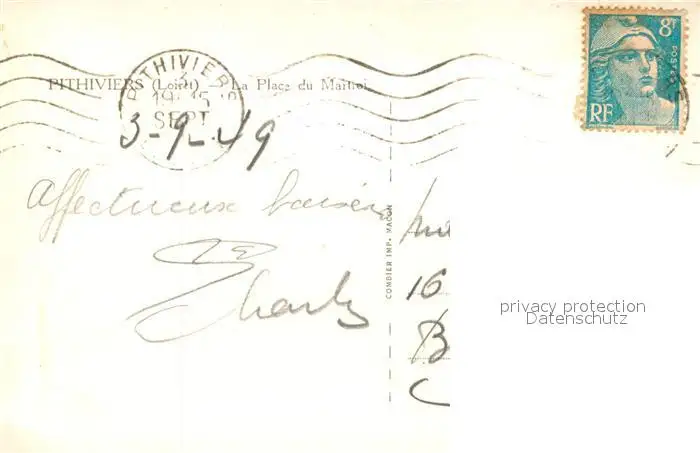 PITHIVIERS (Loiret) La Place du Martroi
PITHIVIERS
3
SEPT
3-9-49
Affectueux baisers
Charly
COMBIER IMP. MACON
16
B
C
8F
POSTES
RF
privacy protection
Datenschutz